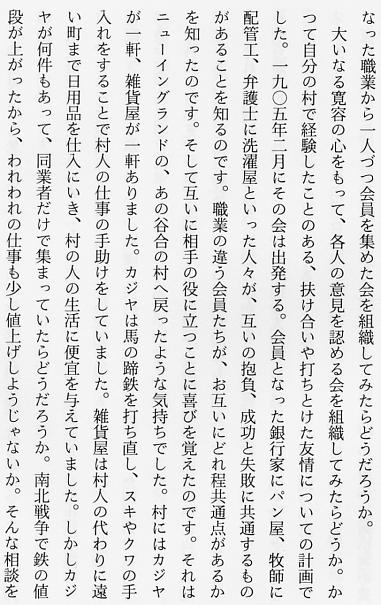 なった職業から一人づつ会員を集めた会を組織してみたらどうだろうか。
大いなる寛容の心をもって、各人の意見を認める会を組織してみたらどうか。か
つて自分の村で経験したことのある、扶け合いや打ちとけた友情についての計画で
した。一九〇五年二月にその会は出発する。会員となった銀行家にパン屋、牧師に
配管工、弁護士に洗濯屋といった人々が、互いの抱負、成功と失敗に共通するもの
があることを知るのです。職業の違う会員たちが、お互いにどれ程共通点があるか
を知ったのです。そして互いに相手の役に立つことに喜びを覚えたのです。それは
ニューイングランドの、あの谷合の村へ戻ったような気持ちでした。村にはカジヤ
が一軒、雑貨屋が一軒ありました。カジヤは馬の蹄鉄を打ち直し、スキやクワの手
入れをすることで村人の仕事の手助けをしていました。雑貨屋は村人の代わりに遠
い町まで日用品を仕入にいき、村の人の生活に便宜を与えていました。しかしカジ
ヤが何件もあって、同業者だけで集まっていたらどうだろうか。南北戦争で鉄の値
段が上がったから、われわれの仕事も少し値上げしようじゃないか。そんな相談を